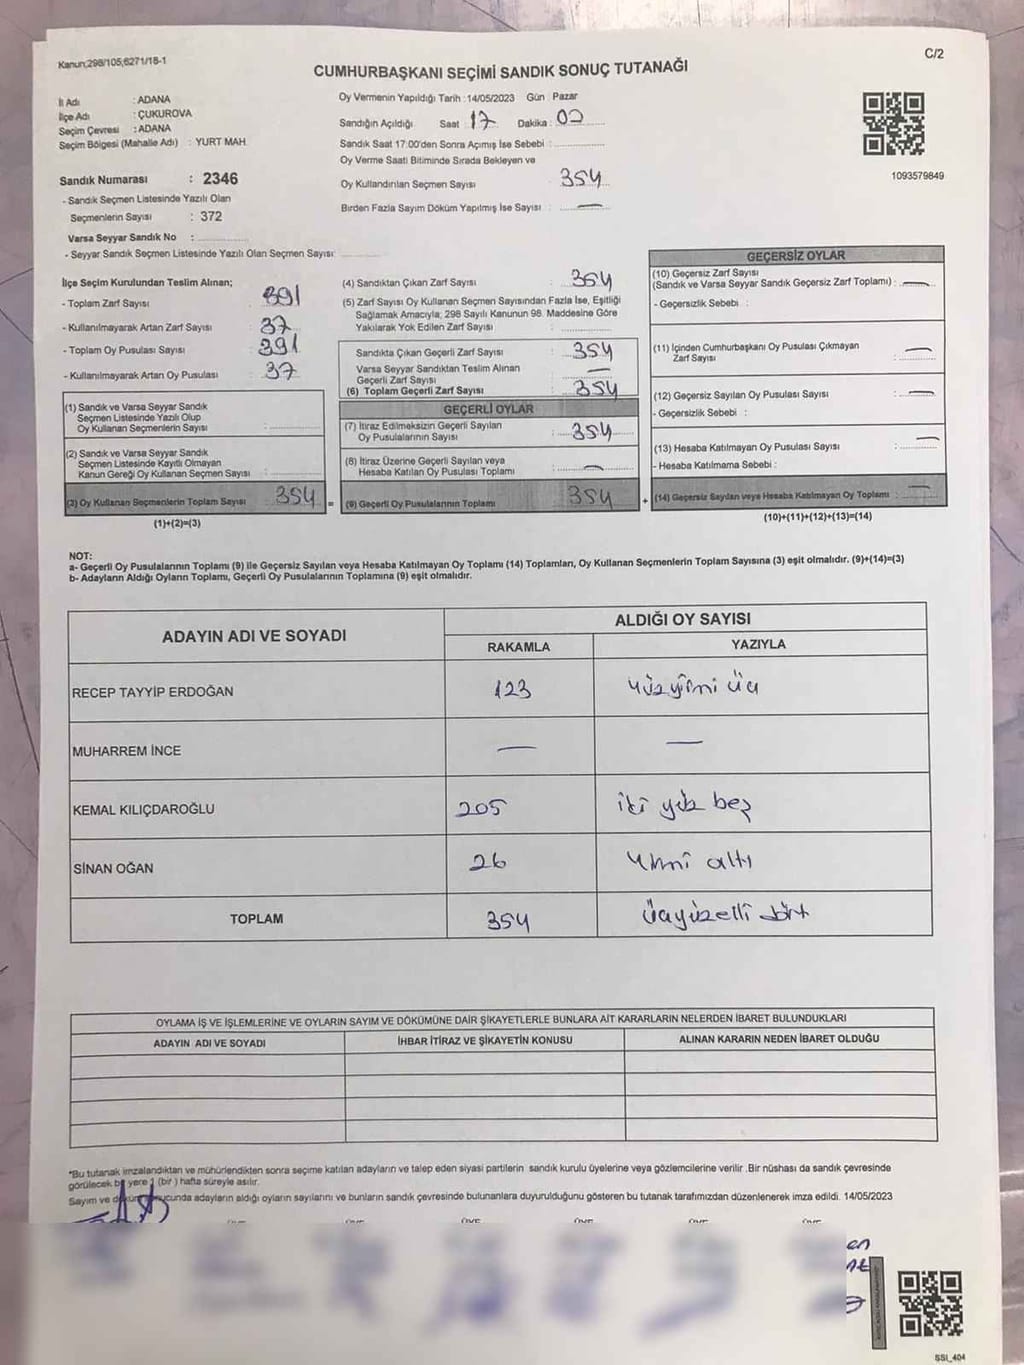 Kanun;298/105;6271/18-1
C/2
CUMHURBAŞKANI SEÇİMİ SANDIK SONUÇ TUTANAĞI
İl Adı : ADANA
İlçe Adı : ÇUKUROVA
Seçim Çevresi : ADANA
Seçim Bölgesi (Mahalle Adı) : YURT MAH.
Sandık Numarası : 2346
- Sandık Seçmen Listesinde Yazılı Olan
Seçmenlerin Sayısı : 372
Varsa Seyyar Sandık No :
- Seyyar Sandık Seçmen Listesinde Yazılı Olan Seçmen Sayısı:
Oy Vermenin Yapıldığı Tarih : 14/05/2023 Gün : Pazar
Sandığın Açıldığı Saat : 17 Dakika : 02
Sandık Saat 17:00'den Sonra Açımış İse Sebebi :
Oy Verme Saati Bitiminde Sırada Bekleyen ve
Oy Kullandırılan Seçmen Sayısı : 354
Birden Fazla Sayım Döküm Yapılmış İse Sayısı : —
1093579849
İlçe Seçim Kurulundan Teslim Alınan;
- Toplam Zarf Sayısı : 391
- Kullanılmayarak Artan Zarf Sayısı : 37
- Toplam Oy Pusulası Sayısı : 391
- Kullanılmayarak Artan Oy Pusulası : 37
(1) Sandık ve Varsa Seyyar Sandık
Seçmen Listesinde Yazılı Olup
Oy Kullanan Seçmenlerin Sayısı :
(2) Sandık ve Varsa Seyyar Sandık
Seçmen Listesinde Kayıtlı Olmayan
Kanun Gereği Oy Kullanan Seçmen Sayısı :
(3) Oy Kullanan Seçmenlerin Toplam Sayısı : 354 =
(1)+(2)=(3)
(4) Sandıktan Çıkan Zarf Sayısı : 354
(5) Zarf Sayısı Oy Kullanan Seçmen Sayısından Fazla İse, Eşitliği
Sağlamak Amacıyla; 298 Sayılı Kanunun 98. Maddesine Göre
Yakılarak Yok Edilen Zarf Sayısı :
Sandıkta Çıkan Geçerli Zarf Sayısı : 354
Varsa Seyyar Sandıktan Teslim Alınan
Geçerli Zarf Sayısı : —
(6) Toplam Geçerli Zarf Sayısı : 354
GEÇERLİ OYLAR
(7) İtiraz Edilmeksizin Geçerli Sayılan
Oy Pusulalarının Sayısı : 354
(8) İtiraz Üzerine Geçerli Sayılan veya
Hesaba Katılan Oy Pusulası Toplamı : —
(9) Geçerli Oy Pusulalarının Toplamı : 354 +
GEÇERSİZ OYLAR
(10) Geçersiz Zarf Sayısı
(Sandık ve Varsa Seyyar Sandık Geçersiz Zarf Toplamı) : —
- Geçersizlik Sebebi :
(11) İçinden Cumhurbaşkanı Oy Pusulası Çıkmayan
Zarf Sayısı : —
(12) Geçersiz Sayılan Oy Pusulası Sayısı : —
- Geçersizlik Sebebi :
(13) Hesaba Katılmayan Oy Pusulası Sayısı : —
- Hesaba Katılmama Sebebi :
(14) Geçersiz Sayılan veya Hesaba Katılmayan Oy Toplamı : —
(10)+(11)+(12)+(13)=(14)
NOT:
a- Geçerli Oy Pusulalarının Toplamı (9) ile Geçersiz Sayılan veya Hesaba Katılmayan Oy Toplamı (14) Toplamları, Oy Kullanan Seçmenlerin Toplam Sayısına (3) eşit olmalıdır. (9)+(14)=(3)
b- Adayların Aldığı Oyların Toplamı, Geçerli Oy Pusulalarının Toplamına (9) eşit olmalıdır.
ADAYIN ADI VE SOYADI
ALDIĞI OY SAYISI
RAKAMLA YAZIYLA
RECEP TAYYİP ERDOĞAN 123 yüzyirmi üç
MUHARREM İNCE — —
KEMAL KILIÇDAROĞLU 205 iki yüz beş
SİNAN OĞAN 26 yirmi altı
TOPLAM 354 üçyüzelli dört
OYLAMA İŞ VE İŞLEMLERİNE VE OYLARIN SAYIM VE DÖKÜMÜNE DAİR ŞİKAYETLERLE BUNLARA AİT KARARLARIN NELERDEN İBARET BULUNDUKLARI
ADAYIN ADI VE SOYADI İHBAR İTİRAZ VE ŞİKAYETİN KONUSU ALINAN KARARIN NEDEN İBARET OLDUĞU
*Bu tutanak imzalandıktan ve mühürlendikten sonra seçime katılan adayların ve talep eden siyasi partilerin sandık kurulu üyelerine veya gözlemcilerine verilir .Bir nüshası da sandık çevresinde
görülecek bir yere 1 (bir ) hafta süreyle asılır.
Sayım ve döküm sonucunda adayların aldığı oyların sayılarını ve bunların sandık çevresinde bulunanlara duyurulduğunu gösteren bu tutanak tarafımızdan düzenlenerek imza edildi. 14/05/2023
SSI_404